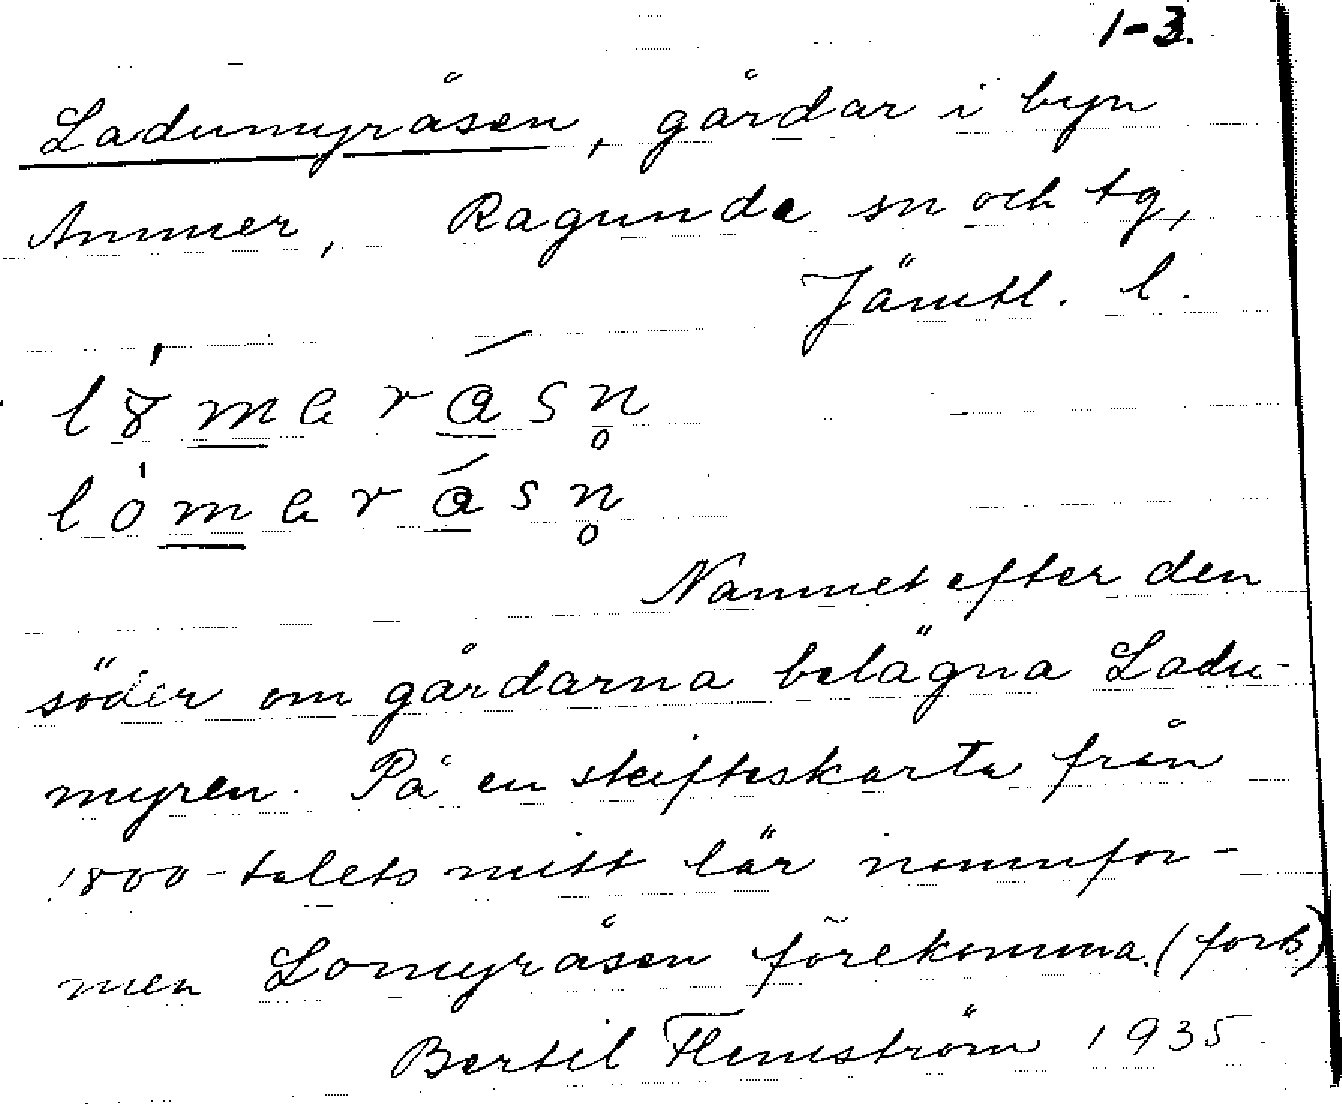 1-3.
Ladumyråsen, gårdar i byn
Ammer, Ragunda sn och tg,
Jämtl. l.
Namnet efter den
söder om gårdarna belägna Ladu-
myren. På en skifteskarta från
1800-talets mitt lär namnfor-
men Lomyråsen förekomma. (forts)
Bertil Flemström 1935